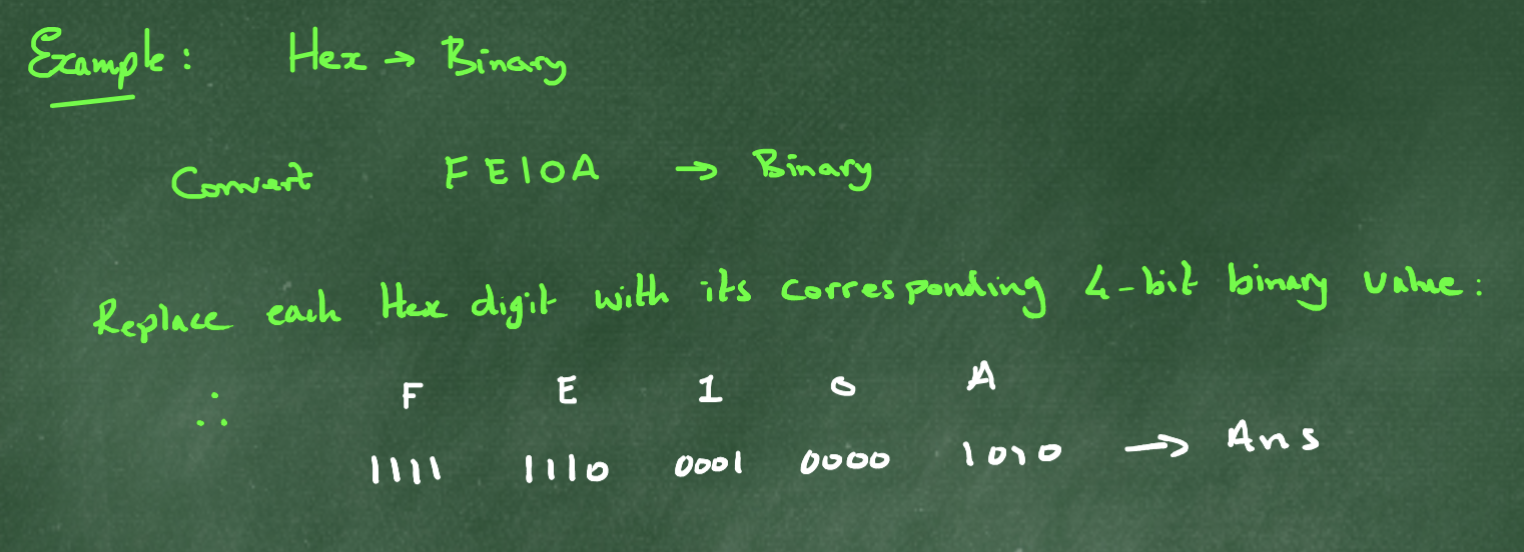 Example: Hex → Binary
Convert FE10A → Binary
Replace each Hex digit with its corresponding 4-bit binary value:
∴ F E 1 0 A
1111 1110 0001 0000 1010 → Ans